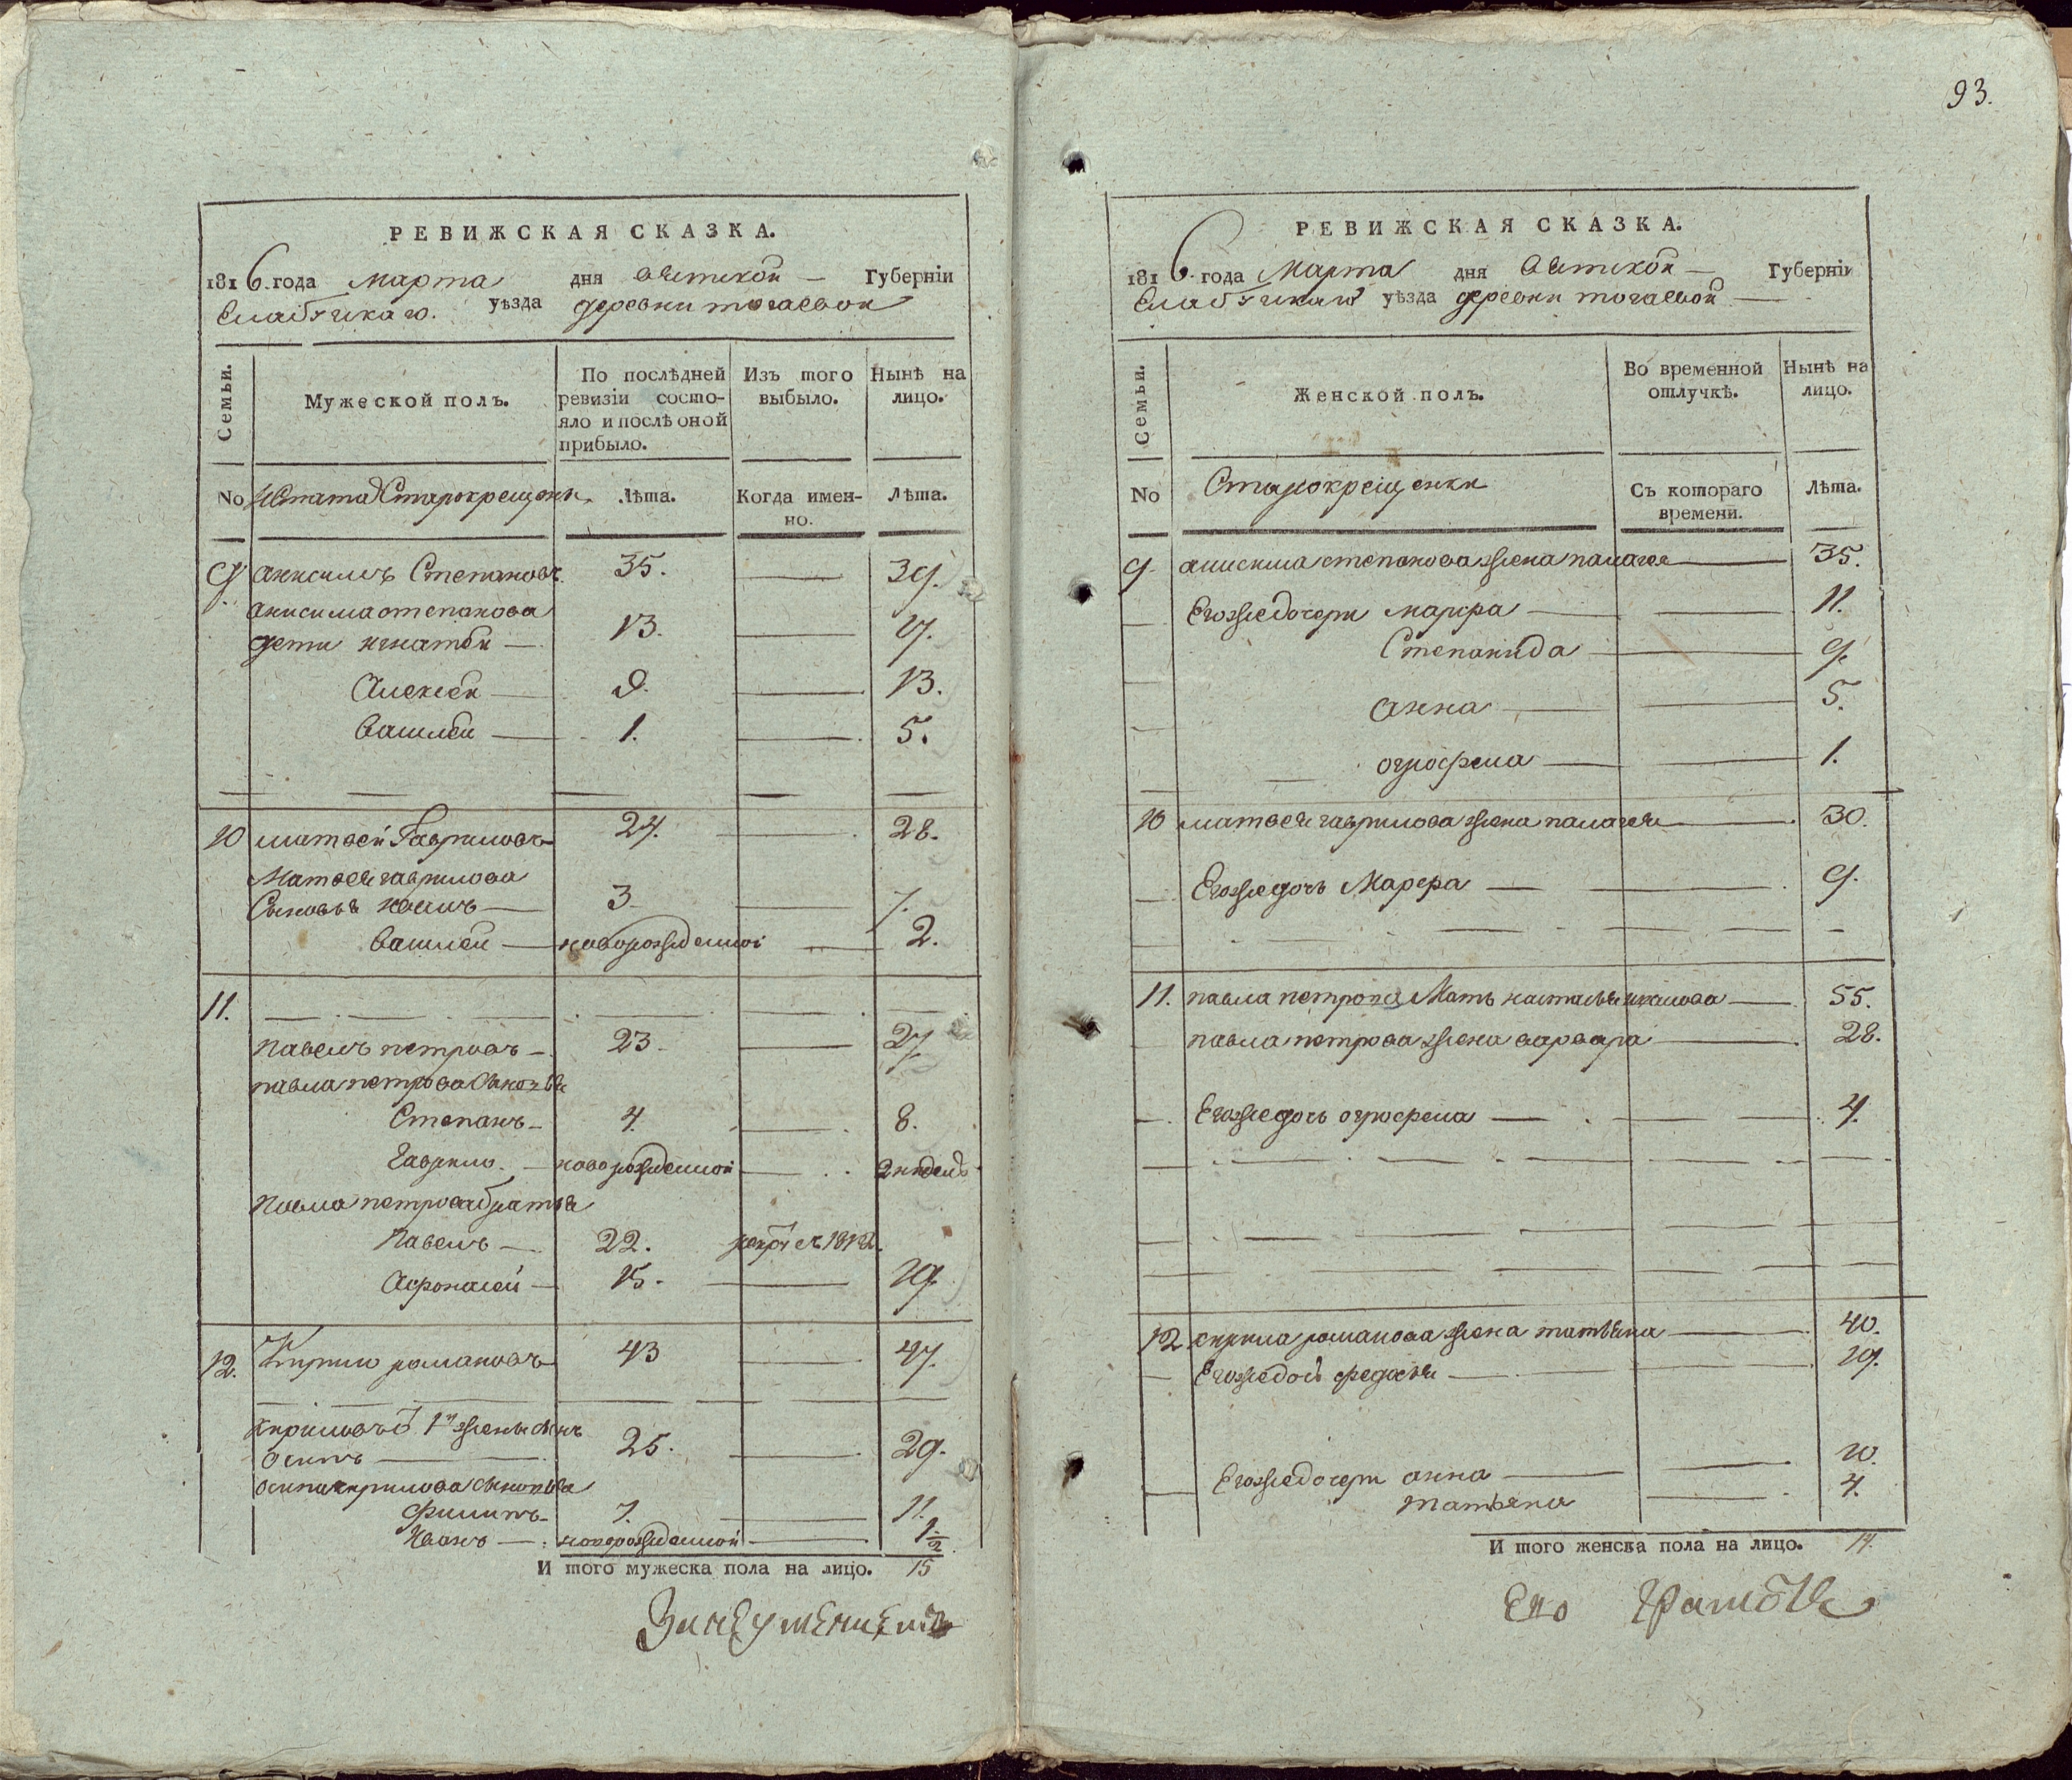 93.
РЕВИЖСКАЯ СКАЗКА.
1816 года марта дня вятской Губернїи
Елабужскаго уѣзда деревни тогаевой
Семьи.
Мужеской полъ.
По послѣдней ревизїи состояло и послѣ оной прибыло.
Изъ того выбыло.
Нынѣ на лицо.
No Старокрещены Лѣта. Когда именно. Лѣта.
9 анисимъ Степановъ 35. 39.
анисима степанова
дети игнатей 13. 17.
Алексей 9. 13.
Василей 1. 5.
10 матвей Гавриловъ 24. 28.
Матвея гаврилова
Сыновья 3 7.
Василей новорожденной 2.
11.
павелъ петровъ 23 27.
павла петрова сыновья
Степанъ 4. 8.
Гаврило новорожденной 2 недель
Павла петрова братья
Павелъ 22. 1812
Афонасей 15. 19.
12. Кирило романовъ 43 47.
1й жены сынъ
осипъ 25. 29.
осипа кирилова сыновья
Филипъ 7. 11.
Иванъ новорожденной 1/2
И того мужеска пола на лицо. 15
РЕВИЖСКАЯ СКАЗКА.
1816 года Марта дня Вятской Губернїи
Елабужскаго уѣзда деревни тогаевой
Семьи.
Женской полъ.
Во временной отлучкѣ.
Нынѣ на лицо.
No Старокрещенки Съ котораго времени. Лѣта.
9. анисима степанова жена палагея 35.
Егожедочери марфа 11.
Степанида 9.
анна 5.
огрофена 1.
10 матвея гаврилова жена палагея 30.
Егожедочь Марфа 9.
11. павла петрова Мать наталья 55.
павла петрова жена варвара 28.
Егожедочь огрофена 4.
12 кирила романова жена татьяна 40.
Егожедочь федосья 19.
Егожедочери анна 10.
татьяна 4.
И того женска пола на лицо. 14.